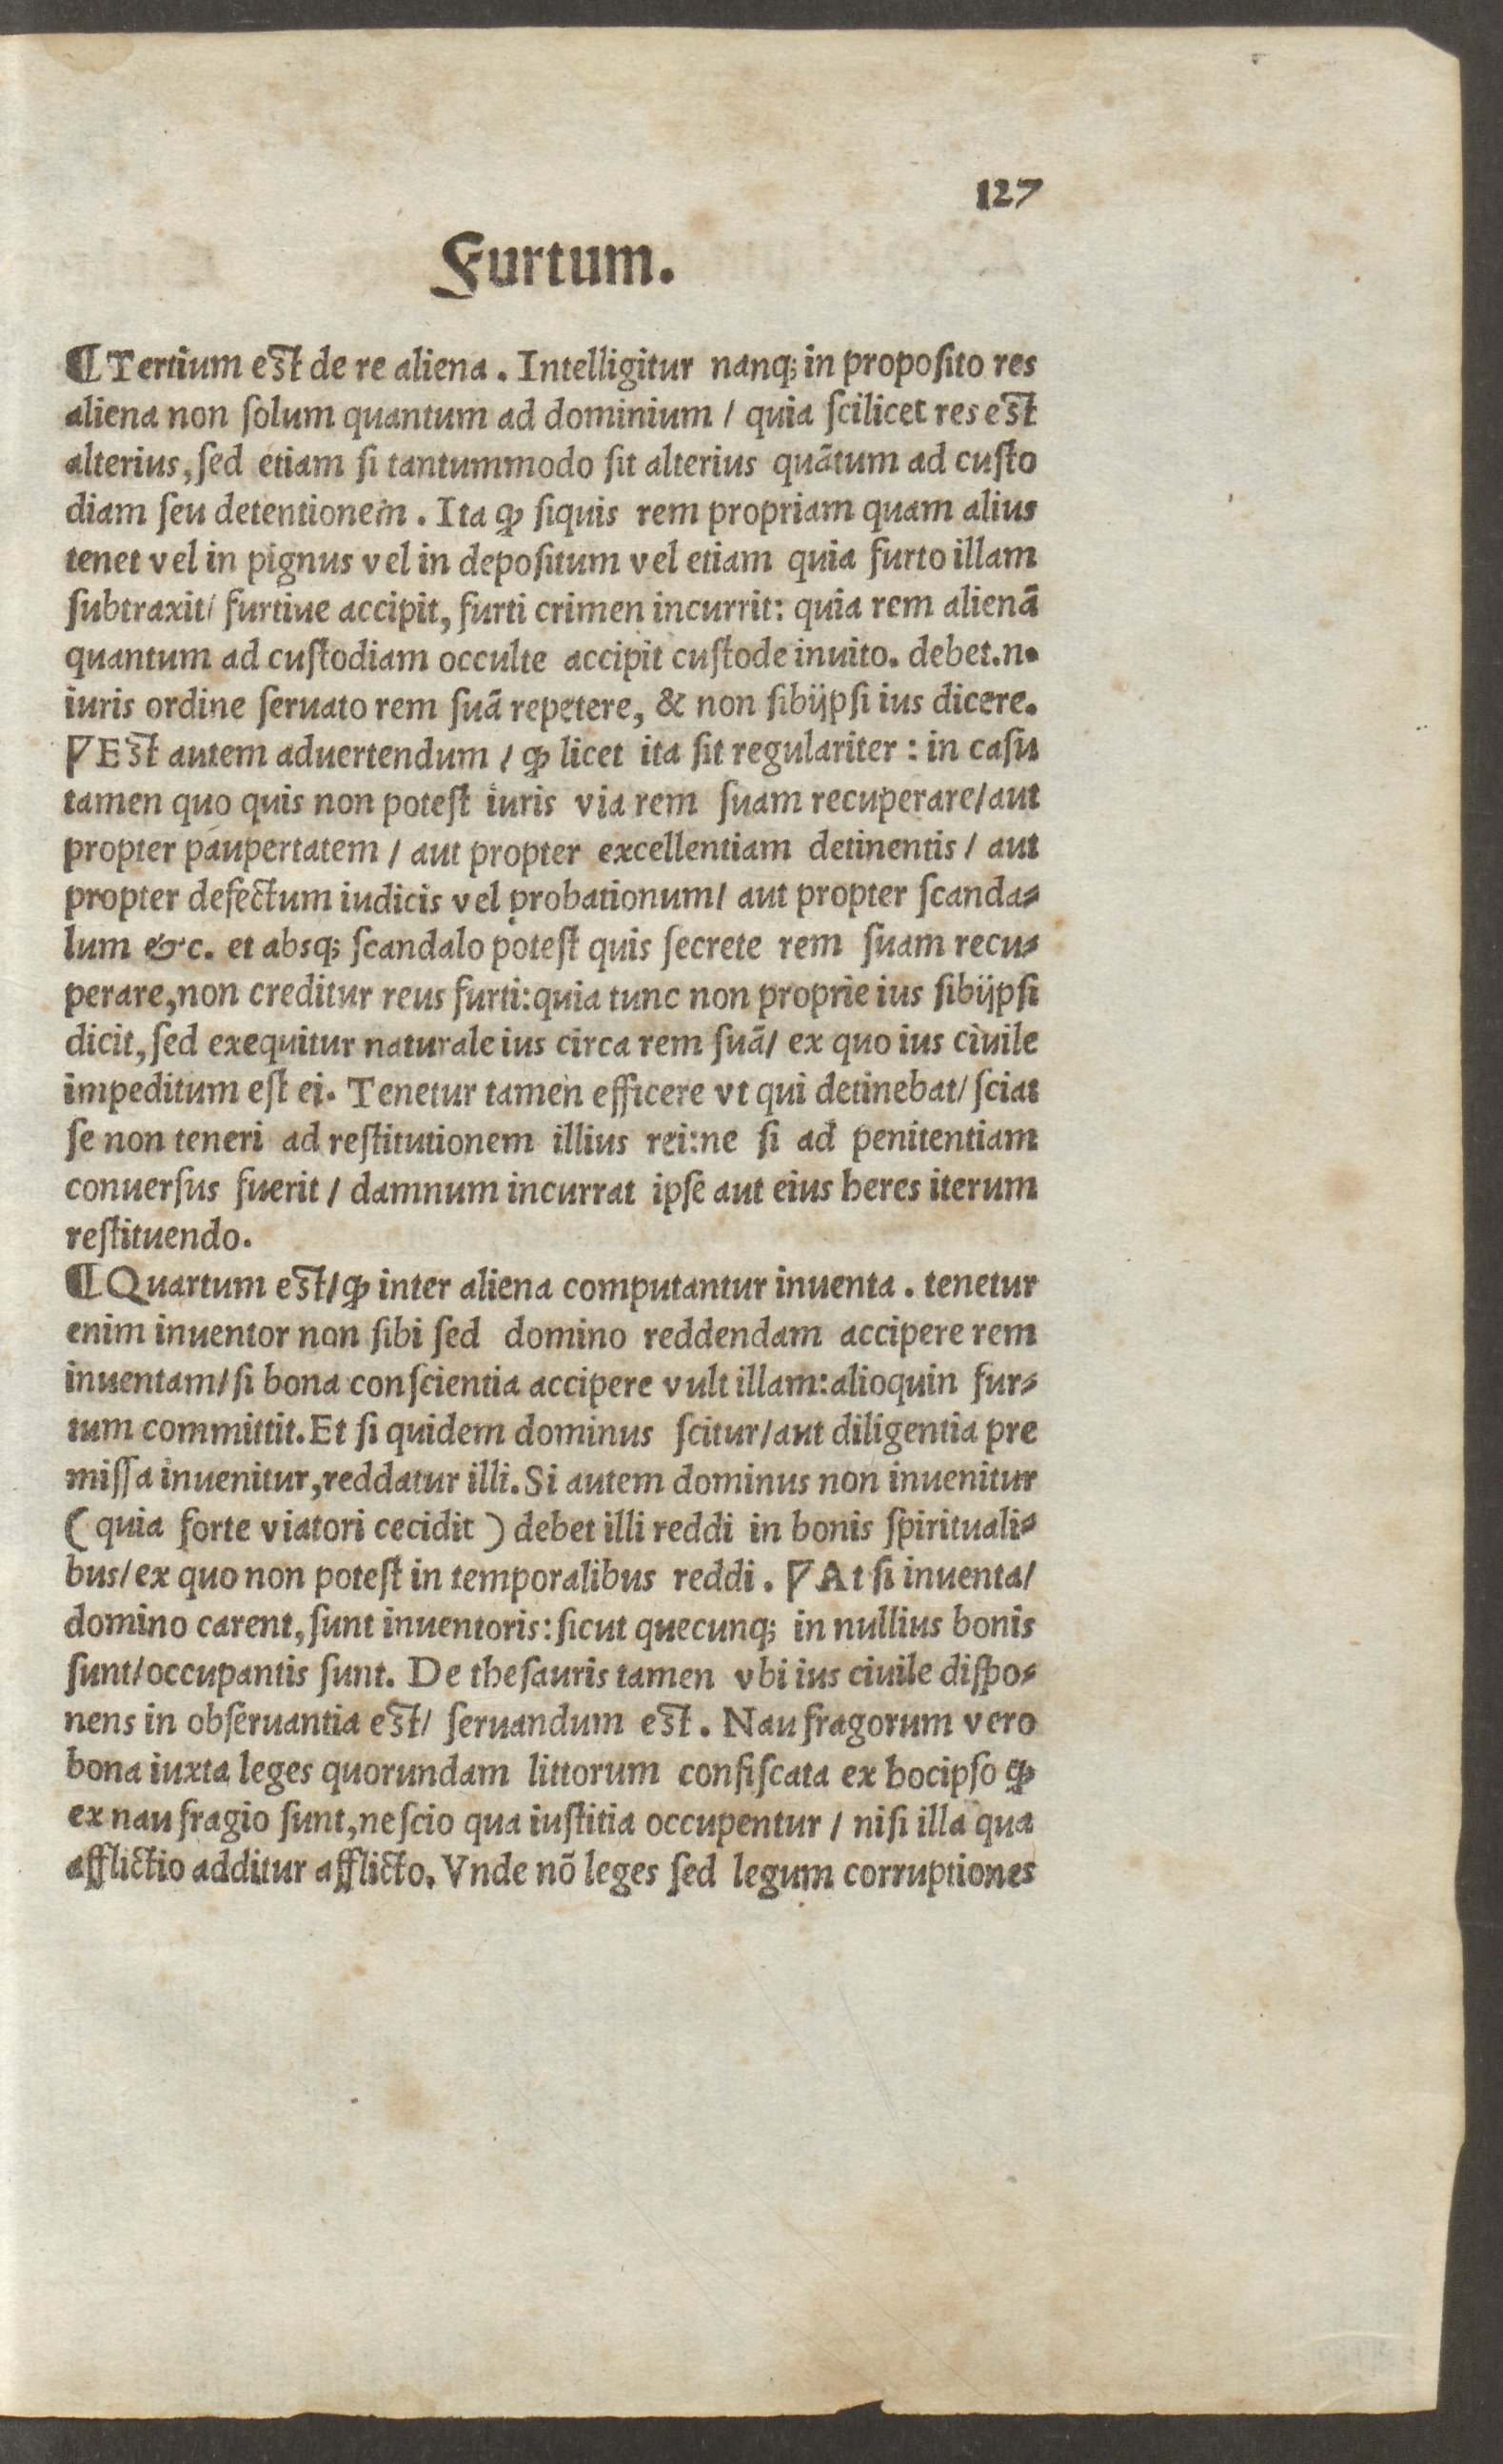 127
Furtum.
¶ Tertium est de re aliena. Intelligitur nanqꝫ in proposito res
aliena non ſolum quantum ad dominium / quia ſcilicet res est
alterius, ſed etiam ſi tantummodo ſit alterius quãtum ad cuſto
diam ſeu detentionem. Ita ꝙ ſiquis rem propriam quam alius
tenet vel in pignus vel in depoſitum vel etiam quia furto illam
ſubtraxit/ furtiue accipit, furti crimen incurrit: quia rem alienã
quantum ad cuſtodiam occulte accipit cuſtode inuito. debet.n.
iuris ordine ſeruato rem ſuã repetere, & non ſibijpſi ius dicere.
Ꝟ Est autem aduertendum / ꝙ licet ita ſit regulariter: in caſu
tamen quo quis non poteſt iuris via rem ſuam recuperare/aut
propter paupertatem / aut propter excellentiam detinentis / aut
propter defectum iudicis vel probationum/ aut propter ſcanda⸗
lum &c. et absqꝫ ſcandalo poteſt quis ſecrete rem ſuam recu⸗
perare, non creditur reus furti: quia tunc non proprie ius ſibijpſi
dicit, ſed exequitur naturale ius circa rem ſuã/ ex quo ius ciuile
impeditum eſt ei. Tenetur tamen efficere vt qui detinebat/ ſciat
ſe non teneri ad reſtitutionem illius rei: ne ſi ad penitentiam
conuerſus fuerit / damnum incurrat ipſe aut eius heres iterum
reſtituendo.
¶ Quartum est/ ꝙ inter aliena computantur inuenta. tenetur
enim inuentor non ſibi ſed domino reddendam accipere rem
inuentam/ ſi bona conſcientia accipere vult illam: alioquin fur⸗
tum committit. Et ſi quidem dominus ſcitur/aut diligentia pre
miſſa inuenitur, reddatur illi. Si autem dominus non inuenitur
(quia forte viatori cecidit) debet illi reddi in bonis ſpirituali⸗
bus/ ex quo non poteſt in temporalibus reddi. Ꝟ At ſi inuenta/
domino carent, ſunt inuentoris: ſicut quecunqꝫ in nullius bonis
ſunt/occupantis ſunt. De theſauris tamen vbi ius ciuile diſpo⸗
nens in obſeruantia est/ ſeruandum est. Naufragorum vero
bona iuxta leges quorundam littorum confiſcata ex hocipſo ꝙ
ex naufragio ſunt, neſcio qua iuſtitia occupentur / niſi illa qua
afflictio additur afflicto. Vnde nõ leges ſed legum corruptiones